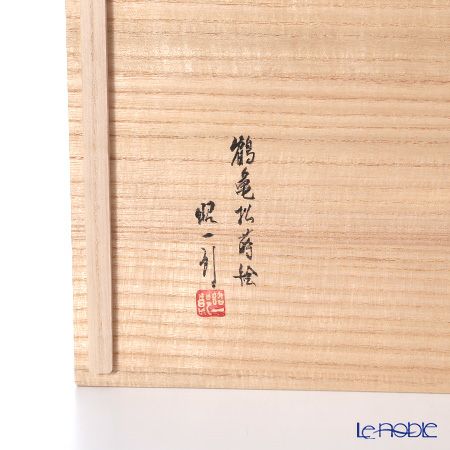 鶴亀松蒔絵
昭一朗
Le-noble